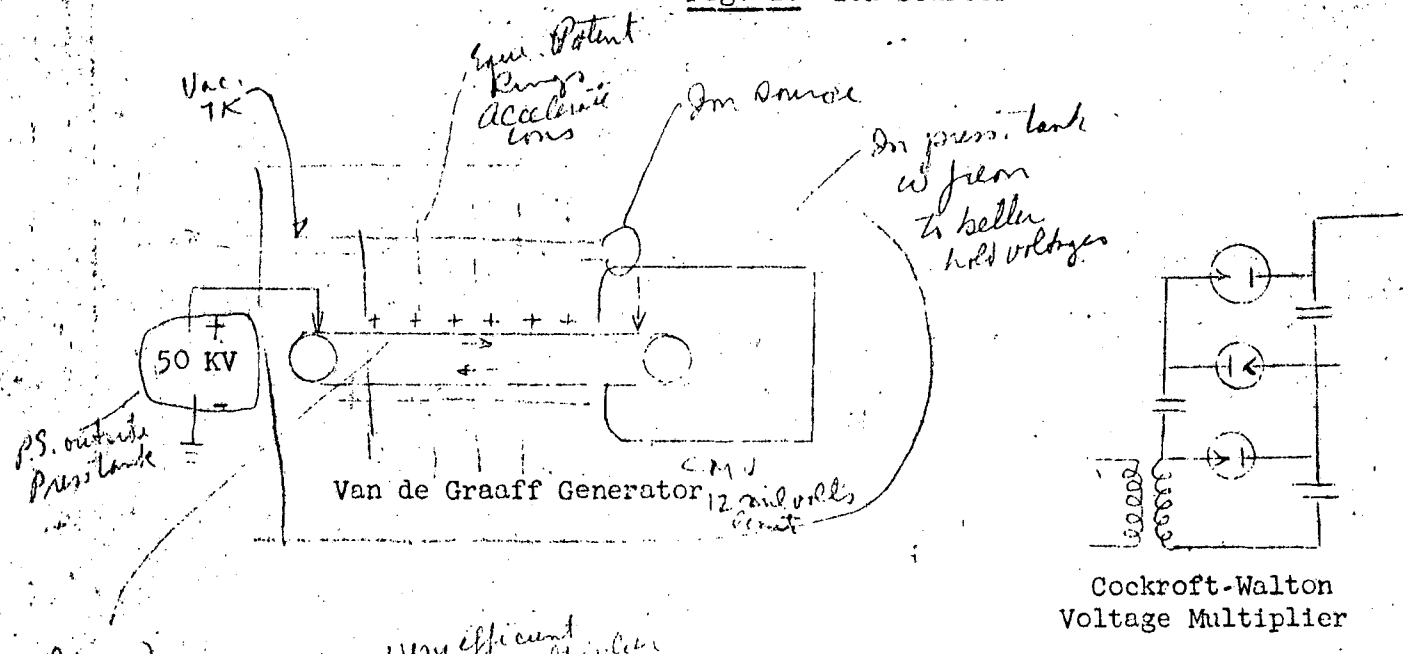 Vac.
Equi. Potent
Rings
accelerate
ions
Ion source
In press. tank
w freon
to better
hold voltages
+ + + + + +
+
50 KV
-
P.S. outside
Press tank
Van de Graaff Generator
12 mil volts
Cockroft-Walton
Voltage Multiplier
Very efficient